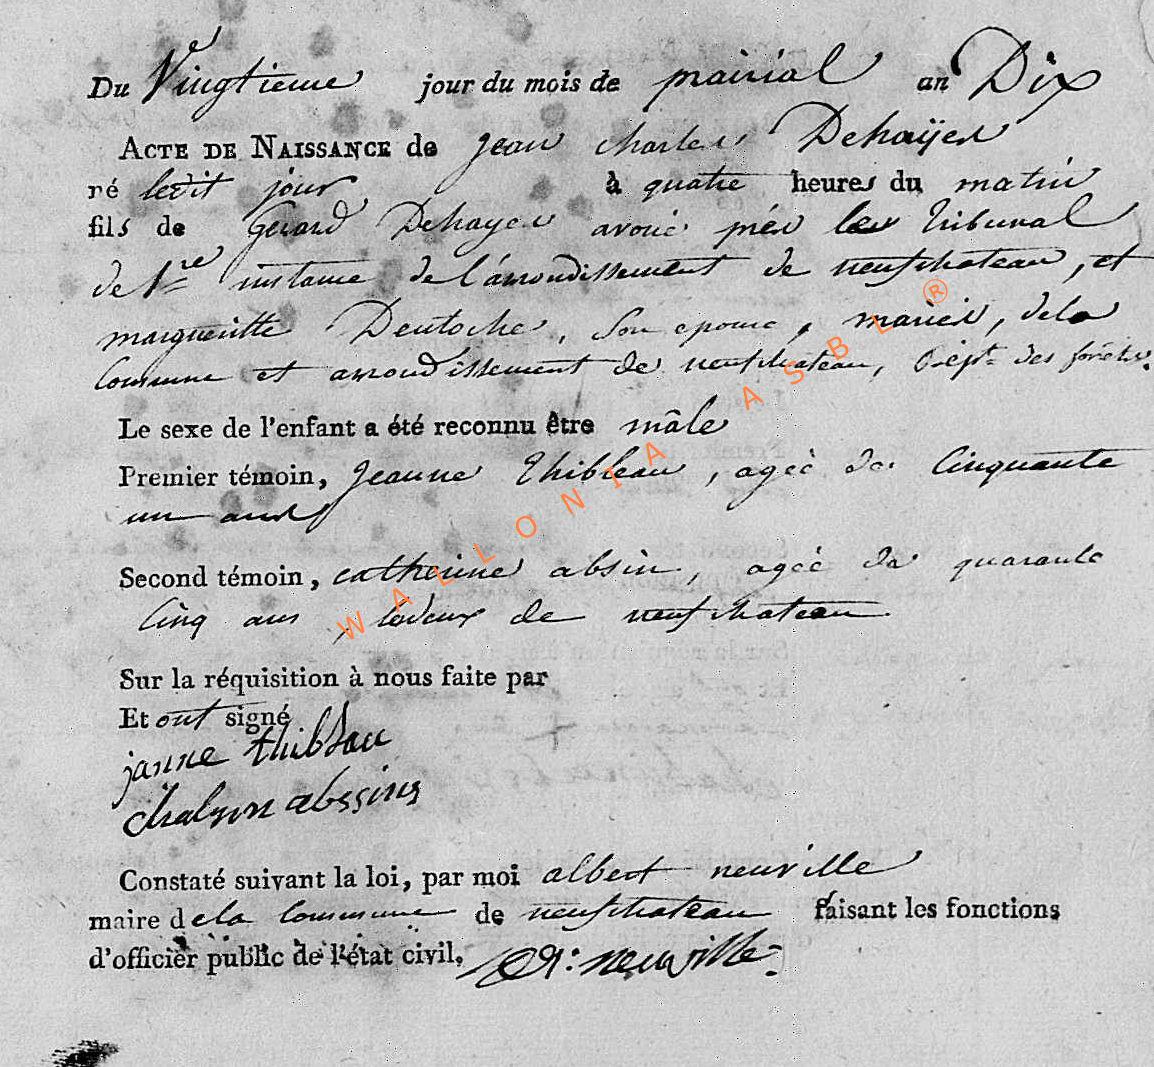 Du Vingtieme jour du mois de prairial an Dix
ACTE DE NAISSANCE de jean charles Dehaÿes
né ledit jour à quatre heures du matin
fils de Gerard Dehayes avoué prés les tribunal
de 1re instance de l'arrondissement de neufchateau, et
margueritte Dentoche, son epouse, mariés, dela
Commune et arrondissement de neufchateau, Dépt. des forêts.
Le sexe de l'enfant a été reconnu être mâle
Premier témoin, jeanne thibleau, agée de Cinquante
un ans
Second témoin, catherine absin, agée de quarante
Cinq ans, de neufchateau
Sur la réquisition à nous faite par
Et ont signé
janne thibsau
abssins
Constaté suivant la loi, par moi albert neuville
maire dela Commune de neufchateau faisant les fonctions
d'officier public de l'état civil, neuville
WALLONIA ASBL ®